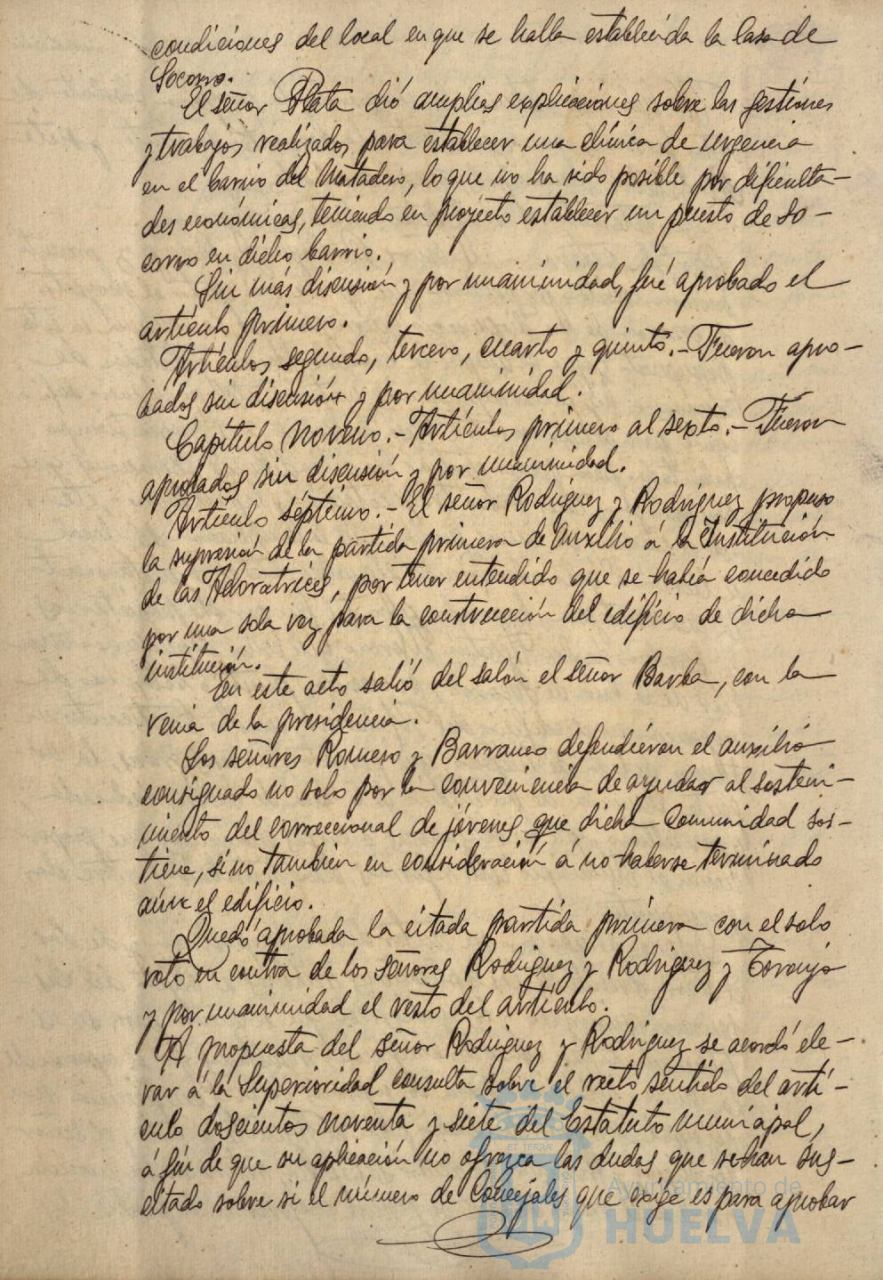 condiciones del local en que se halla establecida la Casa de
Socorro.
El señor Plata dió amplias explicaciones sobre las gestiones
y trabajos realizados para establecer una clínica de urgencia
en el barrio del Matadero, lo que no ha sido posible por dificulta-
des económicas, teniendo en proyecto establecer un puesto de so-
corro en dicho barrio.
Sin más discusión y por unanimidad, fué aprobado el
artículo primero.
Artículos segundo, tercero, cuarto y quinto.- Fueron apro-
bados sin discusión y por unanimidad.
Capítulo noveno.- Artículos primero al sexto.- Fueron
aprobados sin discusión y por unanimidad.
Artículo séptimo.- El señor Rodríguez y Rodríguez propuso
la supresión de la partida primera de Auxilio á la Institución
de las Adoratrices, por tener entendido que se había concedido
por una sola vez para la construcción del edificio de dicha
institución.
En este acto salió del salón el señor Barba, con la
venia de la presidencia.
Los señores Romero y Barranco defendieron el auxilio
consignado no solo por la conveniencia de ayudar al sosteni-
miento del correccional de jóvenes que dicha Comunidad sos-
tiene, sino también en consideración á no haberse terminado
aún el edificio.
Quedó aprobada la citada partida primera con el solo
voto en contra de los señores Rodríguez y Rodríguez y Toronjo
y por unanimidad el resto del artículo.
A propuesta del señor Rodríguez y Rodríguez se acordó ele-
var á la Superioridad consulta sobre el recto sentido del artí-
culo doscientos noventa y siete del Estatuto municipal,
á fin de que su aplicación no ofrezca las dudas que se han sus-
citado sobre si el número de Concejales que exige es para aprobar
Ayuntamiento de
HUELVA